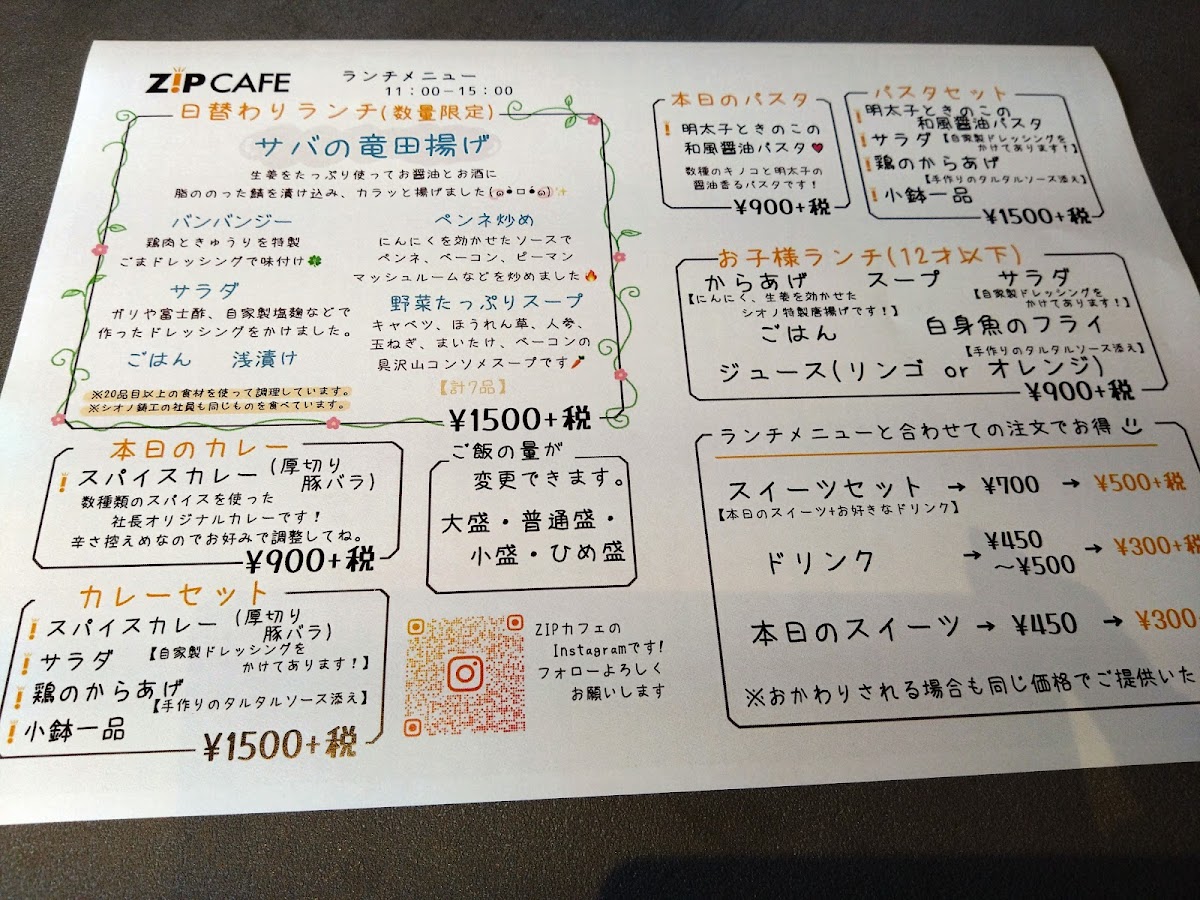 ZIP CAFE
ランチメニュー
11：00－15：00
日替わりランチ(数量限定)
サバの竜田揚げ
生姜をたっぷり使ってお醤油とお酒に
脂ののった鯖を漬け込み、カラッと揚げました
バンバンジー
鶏肉ときゅうりを特製
ごまドレッシングで味付け🍀
サラダ
ガリや富士酢、自家製塩麹などで
作ったドレッシングをかけました。
ごはん 浅漬け
ペンネ炒め
にんにくを効かせたソースで
ペンネ、ベーコン、ピーマン
マッシュルームなどを炒めました🔥
野菜たっぷりスープ
キャベツ、ほうれん草、人参、
玉ねぎ、まいたけ、ベーコンの
具沢山コンソメスープです🥕
【計7品】
※20品目以上の食材を使って調理しています。
※シオノ鋳工の社員も同じものを食べています。
¥1500+税
本日のカレー
スパイスカレー(厚切り
豚バラ)
数種類のスパイスを使った
社長オリジナルカレーです！
辛さ控えめなのでお好みで調整してね。
¥900+税
ご飯の量が
変更できます。
大盛・普通盛・
小盛・ひめ盛
カレーセット
スパイスカレー(厚切り
豚バラ)
サラダ【自家製ドレッシングを
かけてあります！】
鶏のからあげ
【手作りのタルタルソース添え】
小鉢一品
¥1500+税
ZIPカフェの
Instagramです!
フォローよろしく
お願いします
本日のパスタ
明太子ときのこの
和風醤油パスタ♥
数種のキノコと明太子の
醤油香るパスタです！
¥900+税
パスタセット
明太子ときのこの
和風醤油パスタ
サラダ【自家製ドレッシングを
かけてあります！】
鶏のからあげ
【手作りのタルタルソース添え】
小鉢一品
¥1500+税
お子様ランチ(12才以下)
からあげ スープ サラダ
【にんにく、生姜を効かせた
シオノ特製唐揚げです！】
【自家製ドレッシングを
かけてあります！】
ごはん 白身魚のフライ
【手作りのタルタルソース添え】
ジュース(リンゴ or オレンジ)
¥900+税
ランチメニューと合わせての注文でお得
スイーツセット → ¥700 → ¥500+税
【本日のスイーツ+お好きなドリンク】
ドリンク → ¥450
～¥500 → ¥300+税
本日のスイーツ → ¥450 → ¥300+
※おかわりされる場合も同じ価格でご提供いた